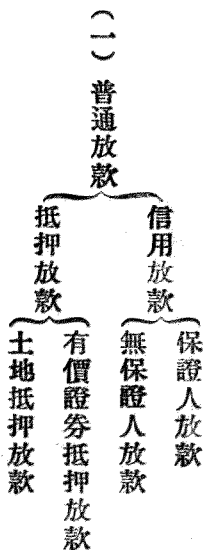 （一）普通放款
信用放款
保證人放款
無保證人放款
抵押放款
有價證券抵押放款
土地抵押放款